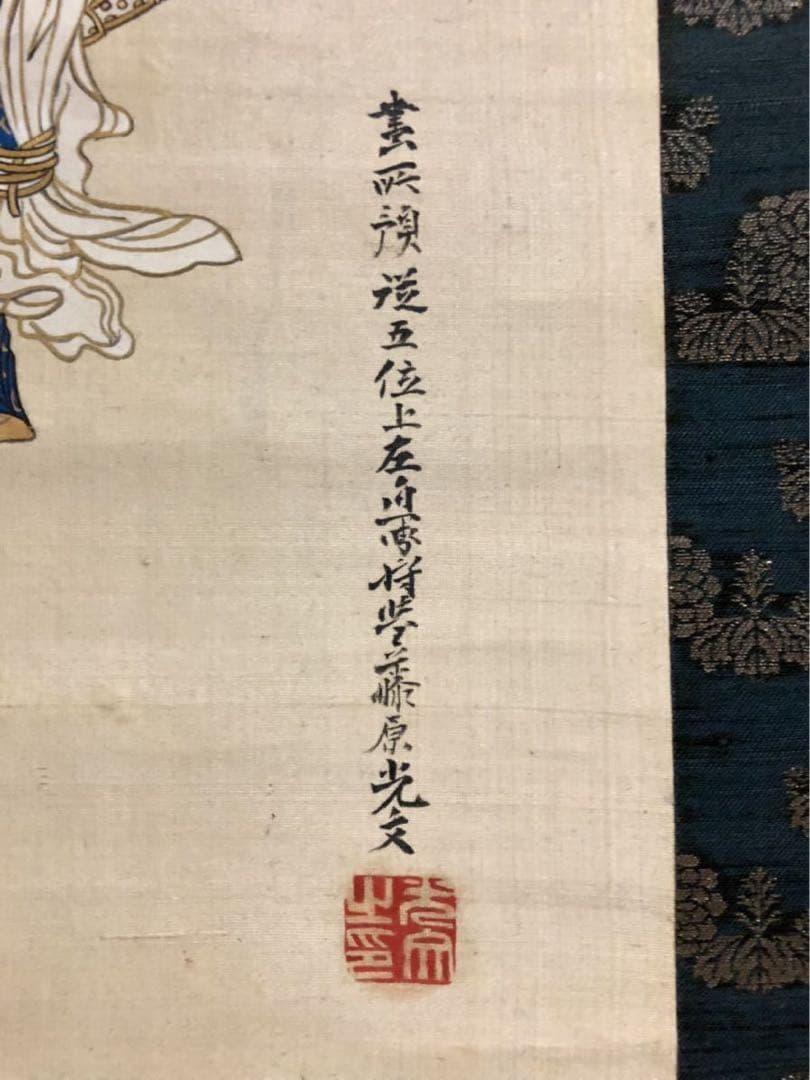 畫所預従五位上左近衛将監藤原光文
光文
之印